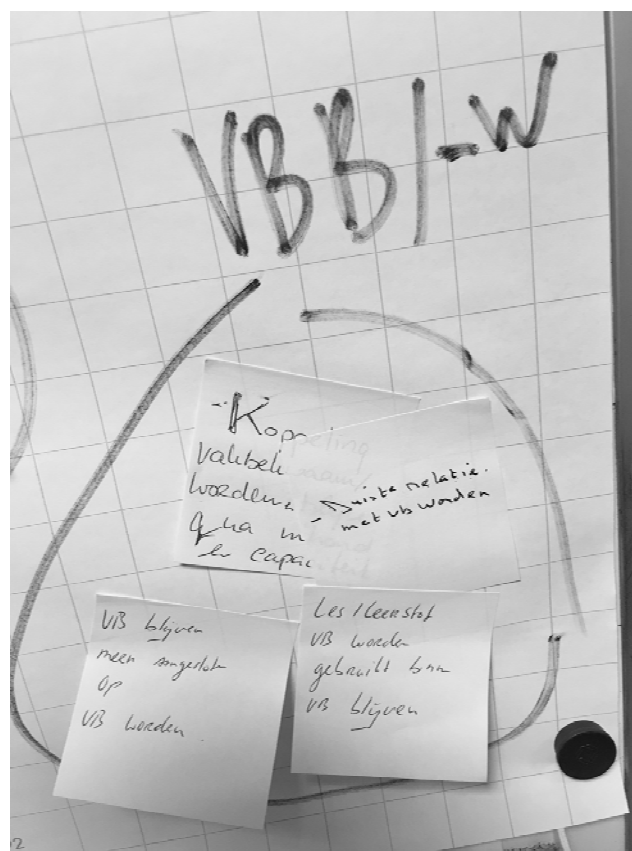 VBB/-W
-Koppeling
Vakbek
worden
qua in
en capaciteit
- Juiste relatie.
met VB worden
VB blijven
meer aangesloten
op
VB worden
Les/Leerstof
VB worden
gebruikt bnn
VB blijven
2